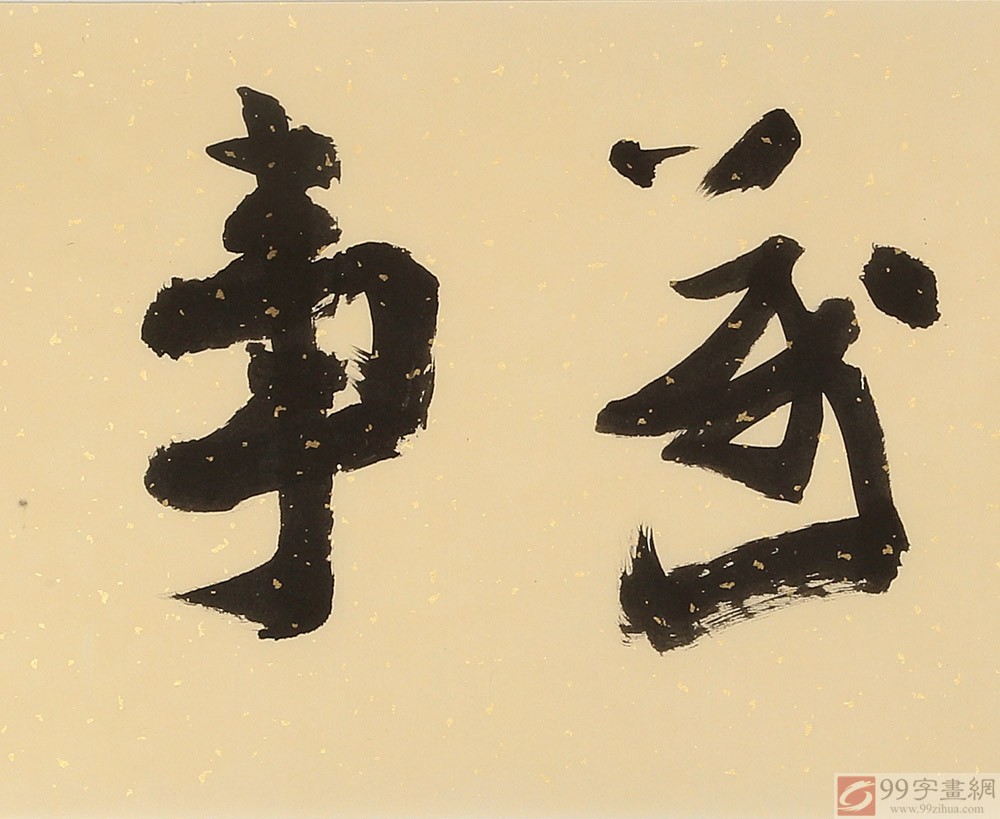 萬事
99字畫網
www.99zihua.com